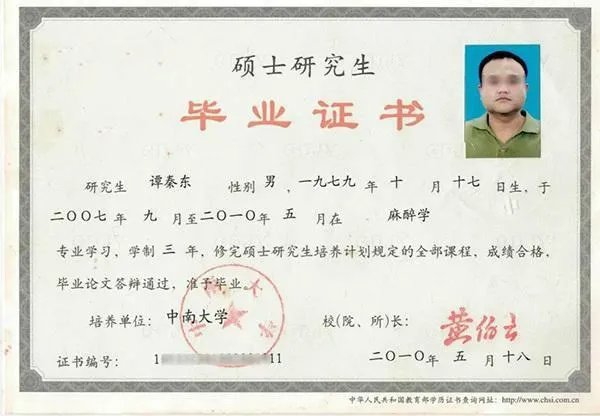 硕士研究生
毕业证书
研究生 谭秦东 性别 男，一九七九 年 十 月 十七 日生，于
二〇〇七 年 九 月至二〇一〇 年 五 月在 麻醉学
专业学习，学制 三 年，修完硕士研究生培养计划规定的全部课程，成绩合格，
毕业论文答辩通过，准予毕业。
培养单位：中南大学 校(院、所)长：黄伯云
证书编号： 1 11 二〇一〇 年 五 月 十八 日
中华人民共和国教育部学历证书查询网址：http://www.chsi.com.cn